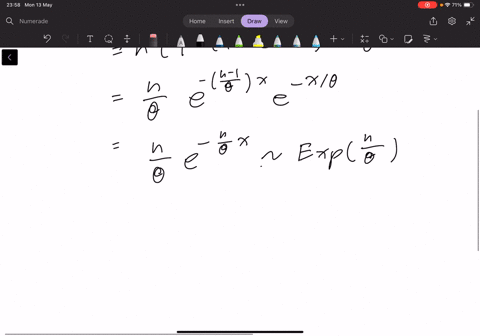 23:58 Mon 13 May
71%
Numerade
Home Insert Draw View
= n/θ e^{-((n-1)/θ)x} e^{-x/θ}
= n/θ e^{-(n/θ)x} ~ Exp(n/θ)